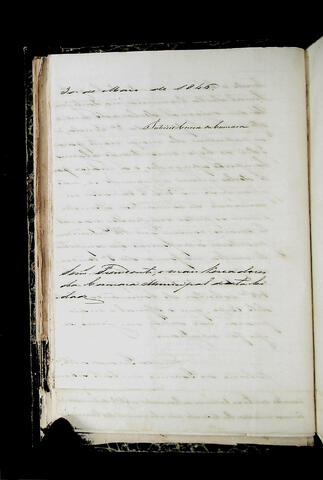 30 de Maio de 1845.
Patricio Correa da Camara
Snrs. Presidente, e mais Vereadores
da Camara Municipal desta Ci
dade